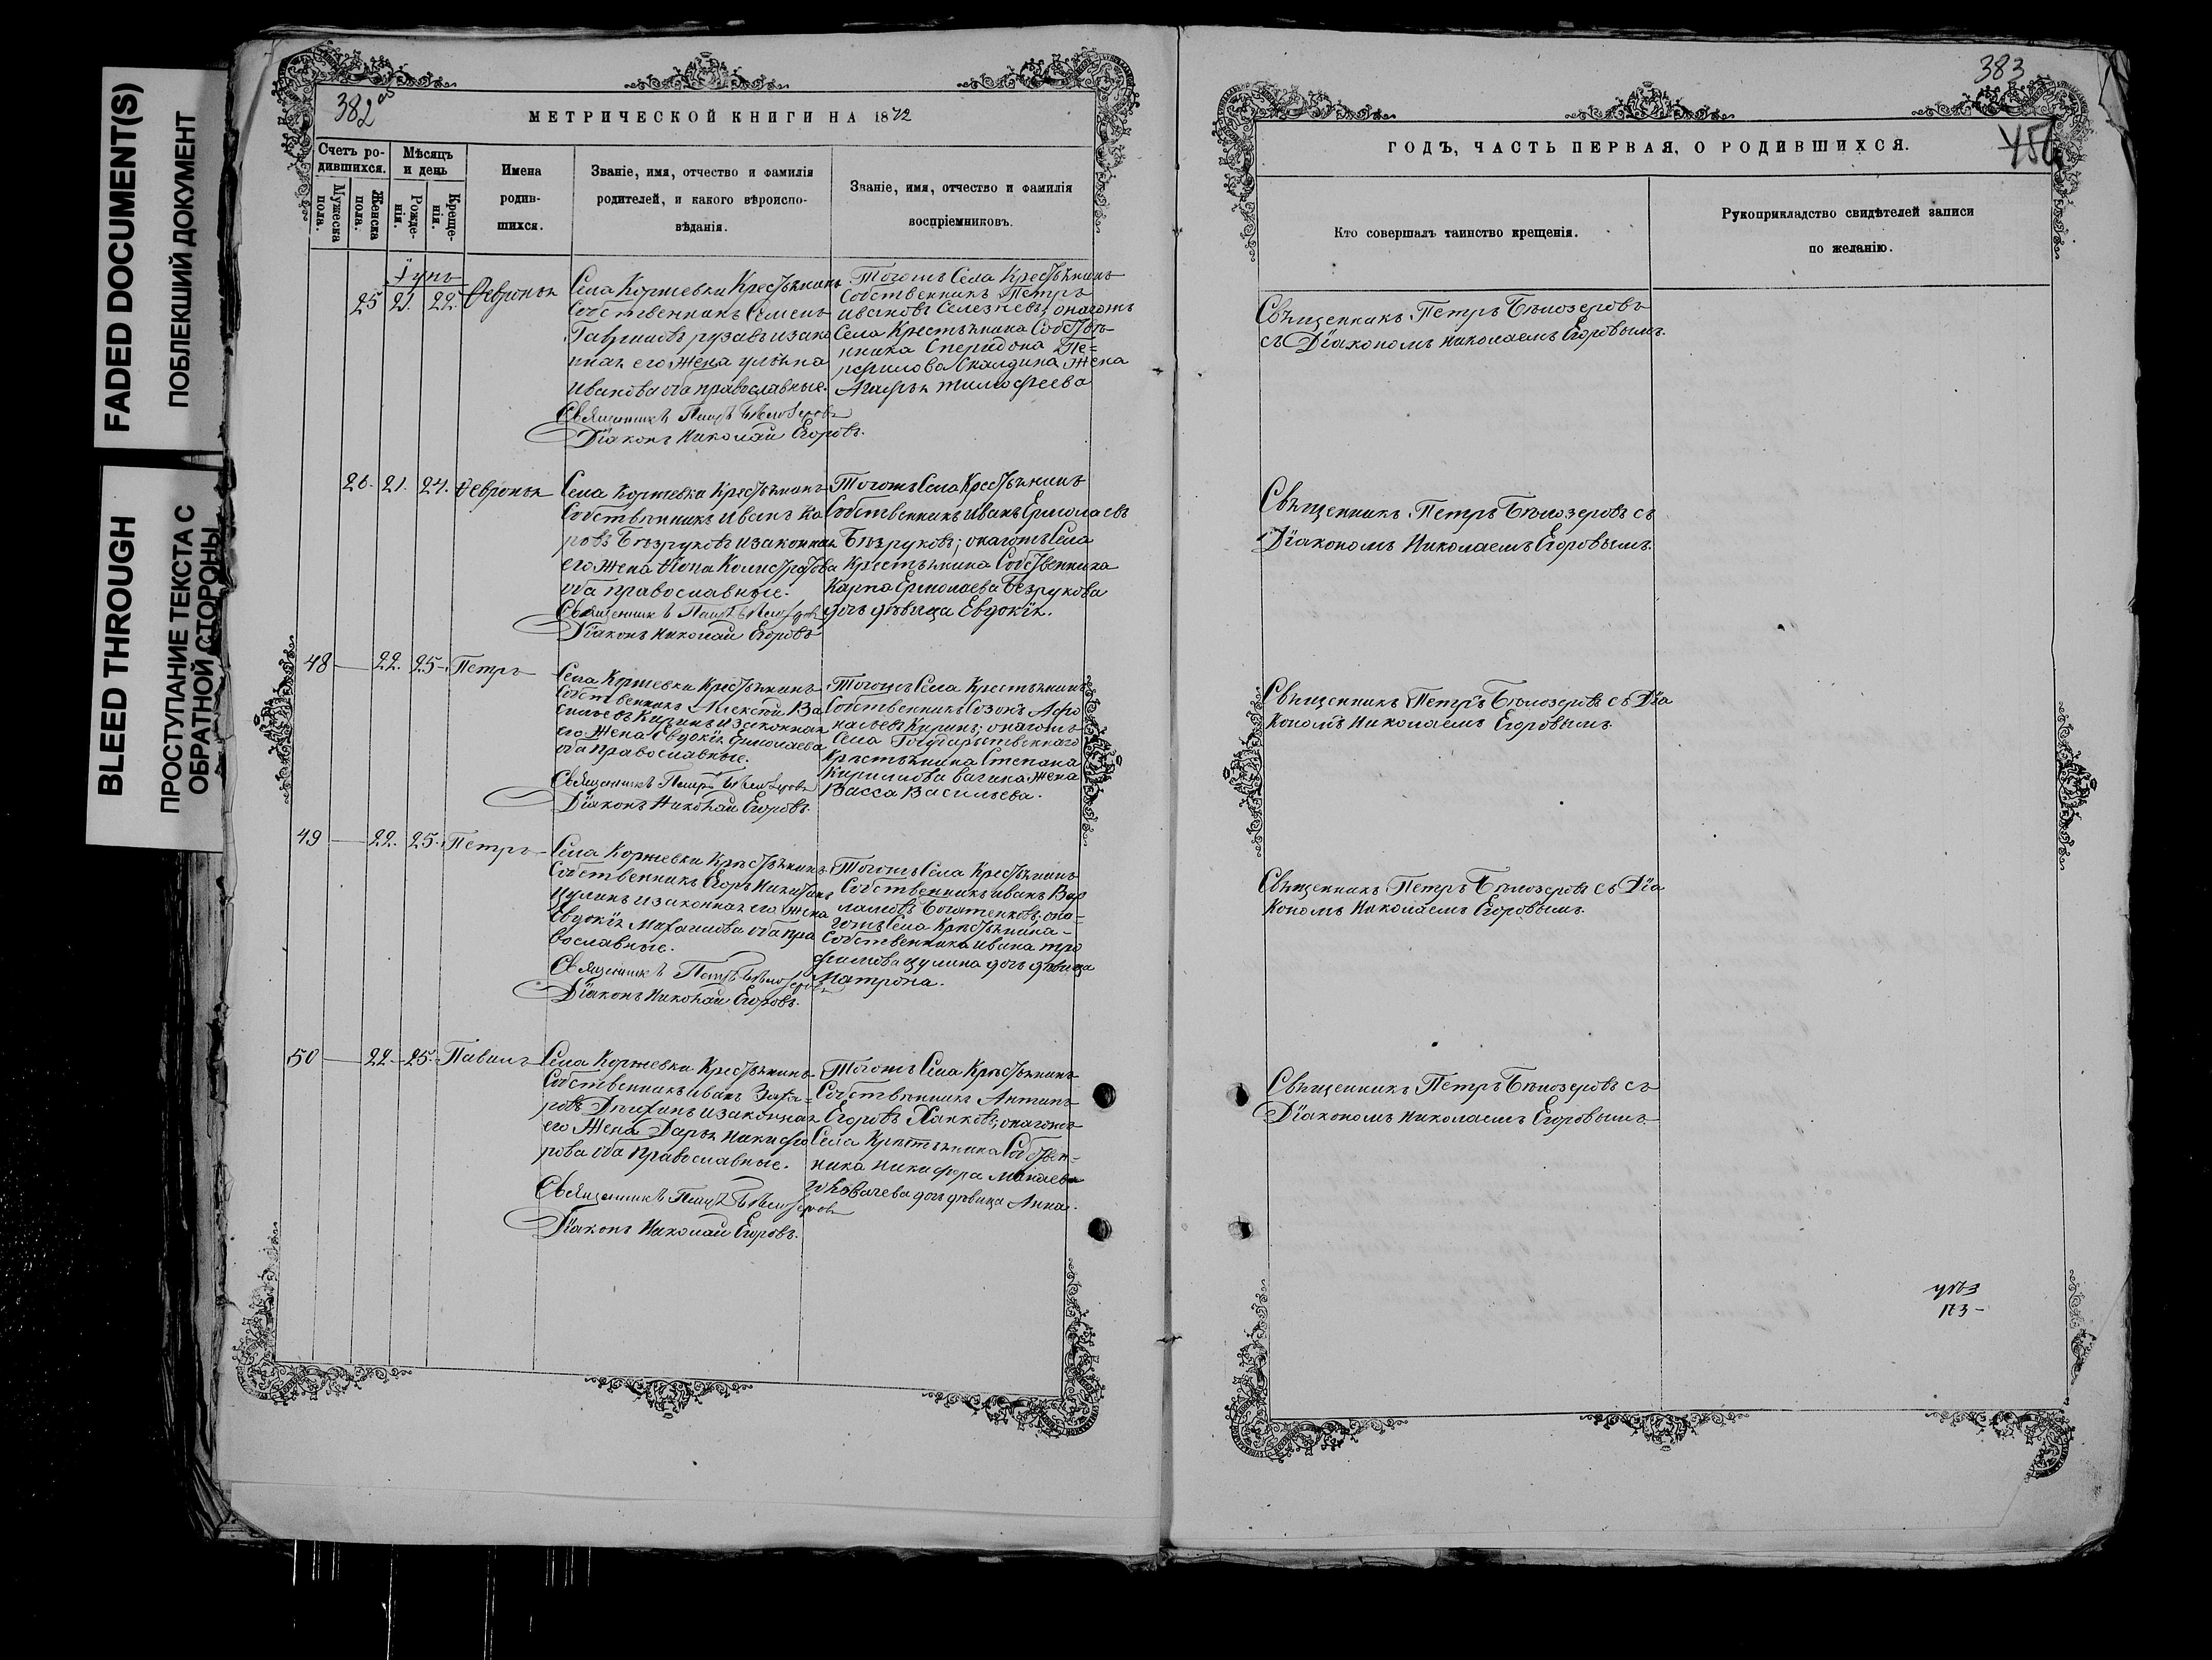 FADED DOCUMENT(S)
ПОБЛЕКШИЙ ДОКУМЕНТ
BLEED THROUGH
ПРОСТУПАНИЕ ТЕКСТА С
ОБРАТНОЙ СТОРОНЫ
382 об
МЕТРИЧЕСКОЙ КНИГИ НА 1872
Счетъ ро-
дившихся.
Мужеска
пола.
Женска
пола.
Мѣсяцъ
и день
Рожде-
нія.
Креще-
нія.
Имена
родив-
шихся.
Званіе, имя, отчество и фамилія
родителей, и какого вѣроиспо-
вѣданія.
Званіе, имя, отчество и фамилія
воспріемниковъ.
25 21. 22. Февронья
Села Коржевки Крестьянинъ
Собственникъ Семенъ
нная его жена
Иванова оба православные.
Священникъ Петръ Бѣлозеровъ
Діаконъ Николай Егоровъ.
Тогожъ Села Крестьянинъ
Собственникъ Петръ
Ивановъ Селезневъ; онагожъ
Села Крестьянина Собстве-
нника Спиридона
жена
Агафья Тимофеева
26. 21. 24. Февронья
Села Коржевки Крестьянинъ
Собственникъ Иванъ Ка
ровъ Безруковъ и законная
его жена
оба православные.
Священникъ Петръ Бѣлозеровъ
Діаконъ Николай Егоровъ
Тогожъ Села Крестьянинъ
Собственникъ Иванъ Ермолаевъ
Безруковъ; онагожъ Села
Крестьянина Собственника
Карпа Ермолаева Безрукова
дочь дѣвица Евдокія.
48 — 22. 25 - Петръ
Села Коржевки Крестьянинъ
Собственникъ Алексѣй Ва
сильевъ Киринъ и законная
его жена Евдокія Ермолаева
оба православные.
Священникъ Петръ Бѣлозеровъ
Діаконъ Николай Егоровъ.
Тогожъ Села Крестьянинъ
Собственникъ Созонъ Афо
насьевъ Киринъ; онагожъ
Села Государственнаго
Крестьянина Степана
Кирилова Вагина жена
Васса Васильева.
49 — 22. 25. Петръ
Села Коржевки Крестьянинъ
Собственникъ Егоръ Никитинъ
Цулинъ и законная его жена
Евдокія Михаилова оба пра
вославные.
Священникъ Петръ Бѣлозеровъ
Діаконъ Николай Егоровъ.
Тогожъ Села Крестьянинъ
Собственникъ Иванъ Вар
ламовъ Богатенковъ; она-
гожъ Села Крестьянина
Собственника Ивана Тро
фимова Цулина дочь дѣвица
Матрона.
50 — 22. - 25. - Павилъ
Села Коржевки Крестьянинъ
Собственникъ Иванъ Заха-
ровъ и законная
его жена Дарья Никифо
рова оба православные.
Священникъ Петръ Бѣлозеровъ
Діаконъ Николай Егоровъ.
Тогожъ Села Крестьянинъ
Собственникъ Антипъ
Егоровъ Хапковъ; онагожъ
Села Крестьянина Собствен-
ника Никифора
дочь дѣвица Анна.
383
ГОДЪ, ЧАСТЬ ПЕРВАЯ, О РОДИВШИХСЯ.
Кто совершалъ таинство крещенія.
Рукоприкладство свидѣтелей записи
по желанію.
Священникъ Петръ Бѣлозеровъ
съ Діакономъ Николаемъ Егоровымъ.
Священникъ Петръ Бѣлозеровъ съ
Діакономъ Николаемъ Егоровымъ.
Священникъ Петръ Бѣлозеровъ съ Діа
кономъ Николаемъ Егоровымъ.
Священникъ Петръ Бѣлозеровъ съ Діа
кономъ Николаемъ Егоровымъ.
Священникъ Петръ Бѣлозеровъ съ
Діакономъ Николаемъ Егоровымъ.